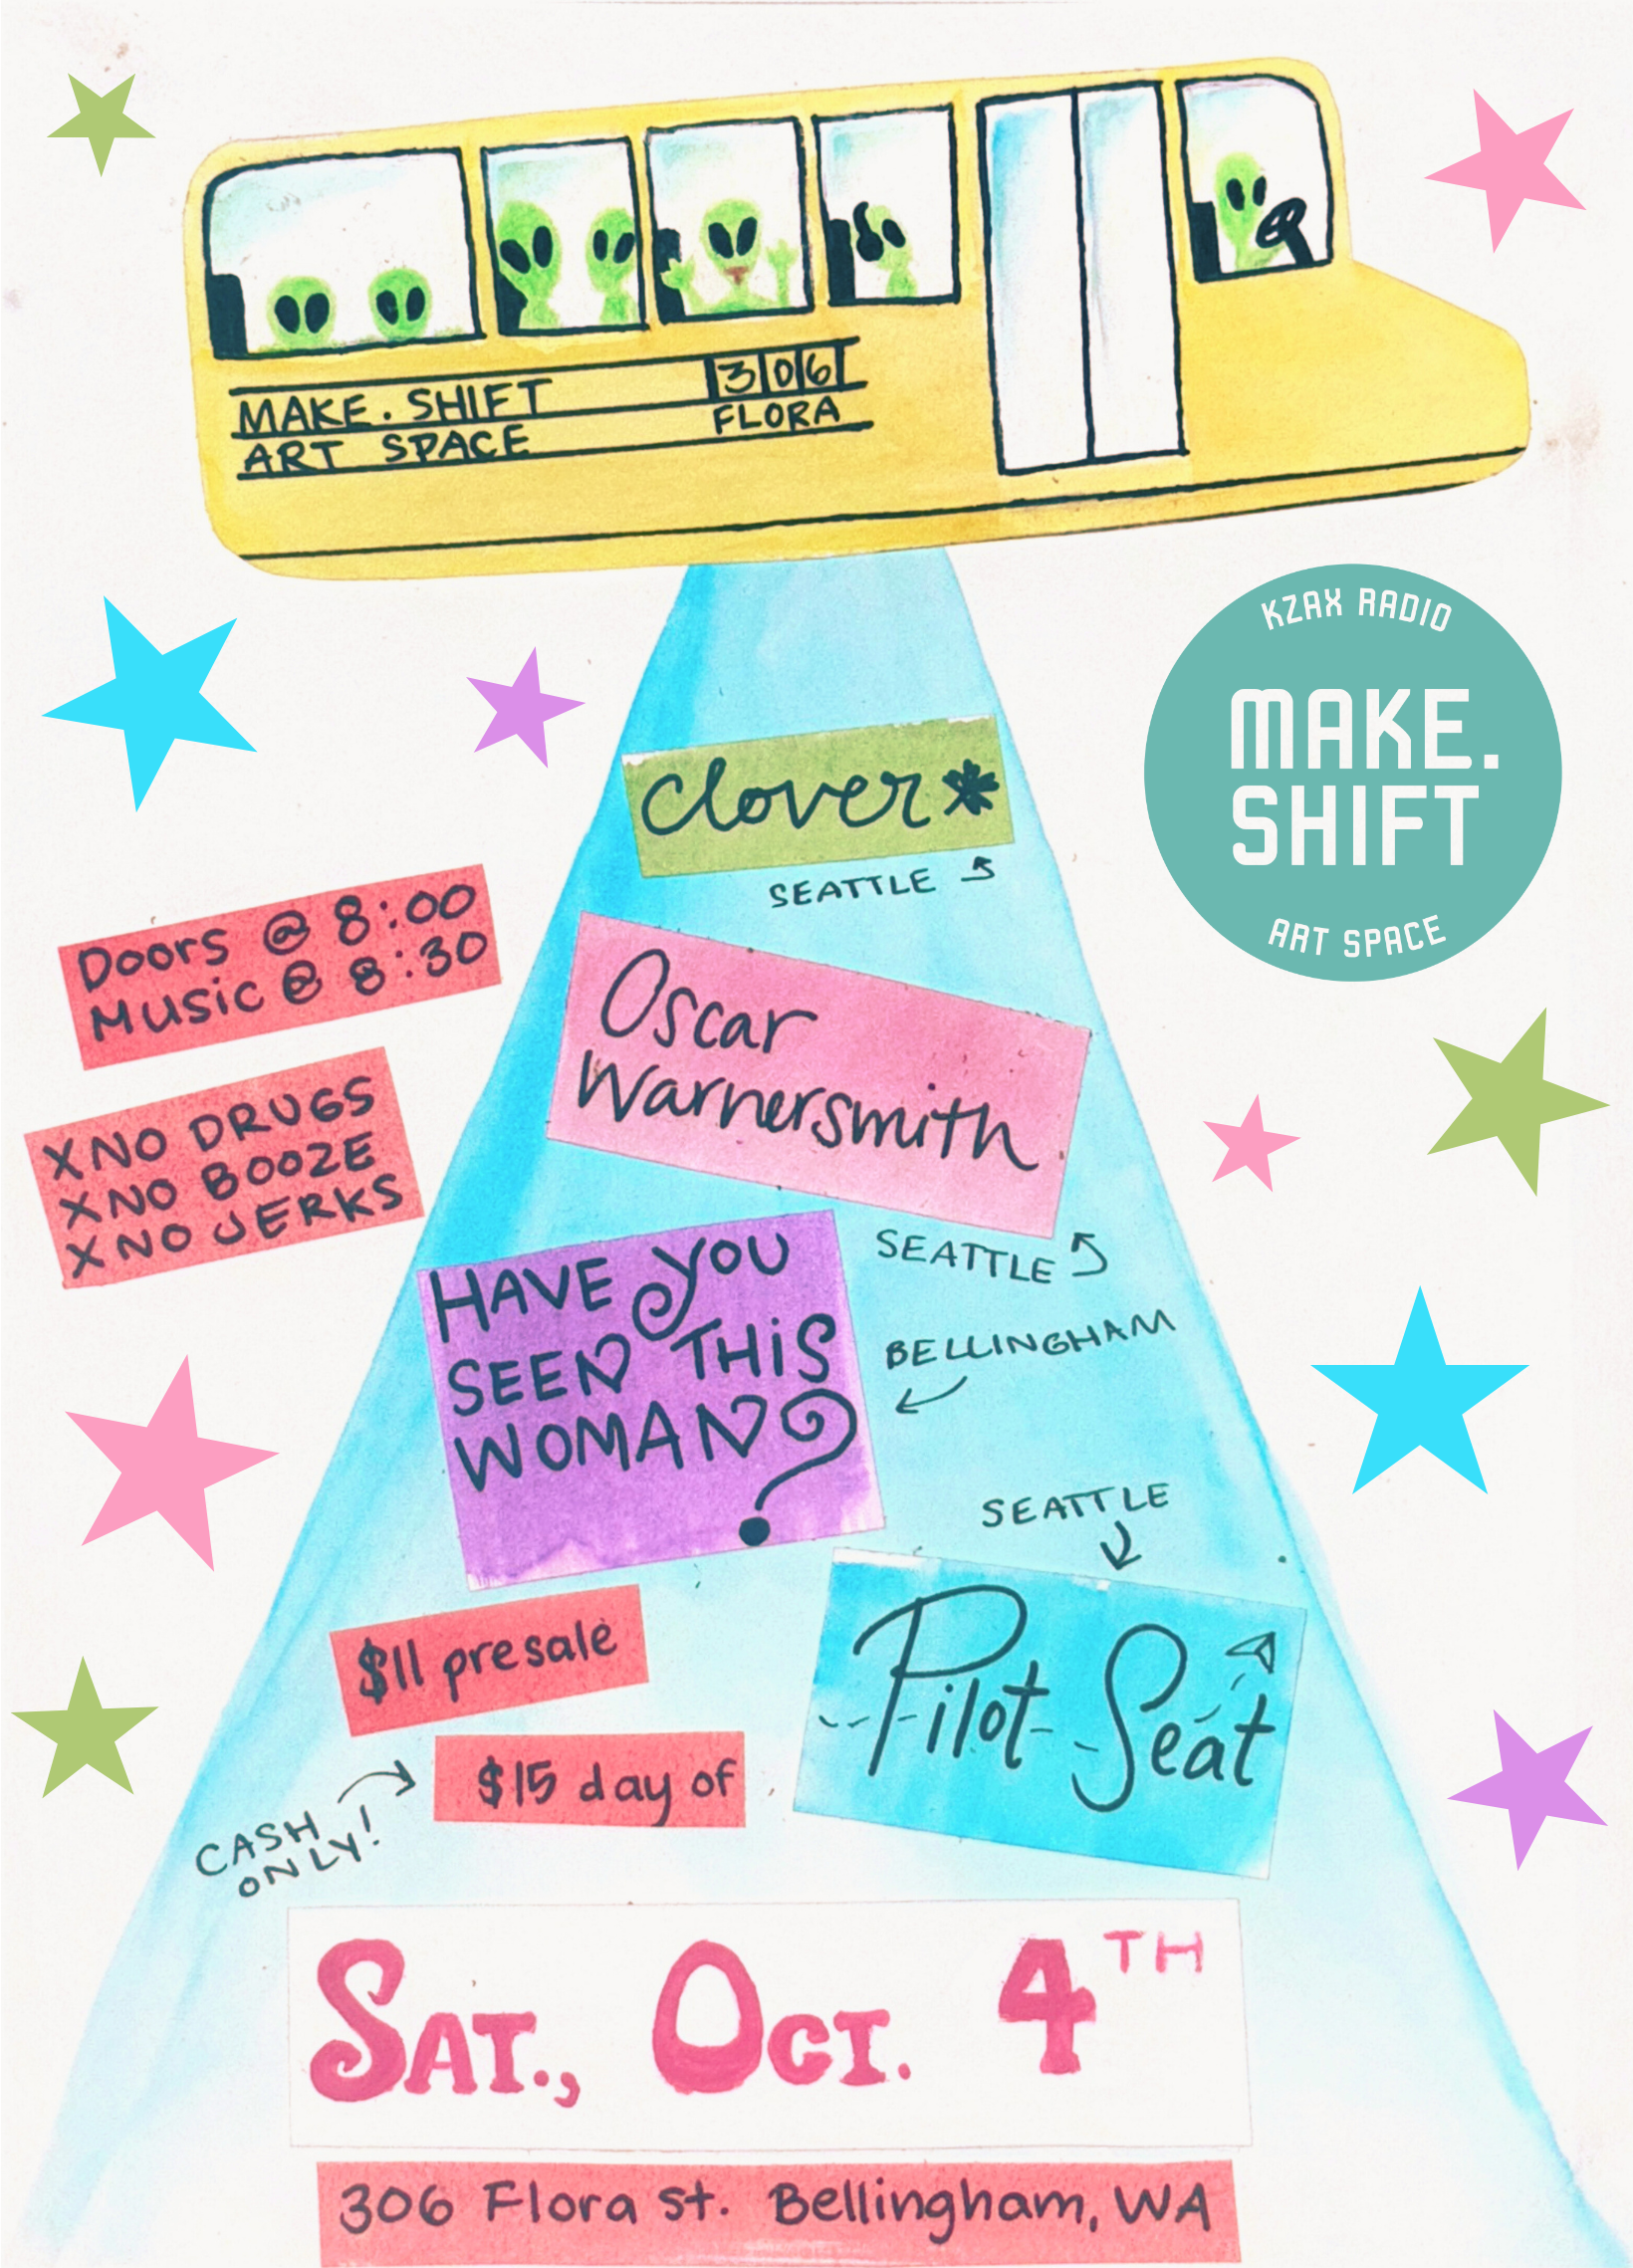 MAKE.SHIFT 306
ART SPACE FLORA
KZAX RADIO
MAKE.
SHIFT
ART SPACE
clover*
SEATTLE
Doors @ 8:00
Music @ 8:30
Oscar
Warnersmith
SEATTLE
X NO DRUGS
X NO BOOZE
X NO JERKS
HAVE YOU
SEEN THiS
WOMAN?
BELLINGHAM
SEATTLE
Pilot Seat
$11 presale
$15 day of
CASH
ONLY!
SAT., OCT. 4TH
306 Flora St. Bellingham, WA